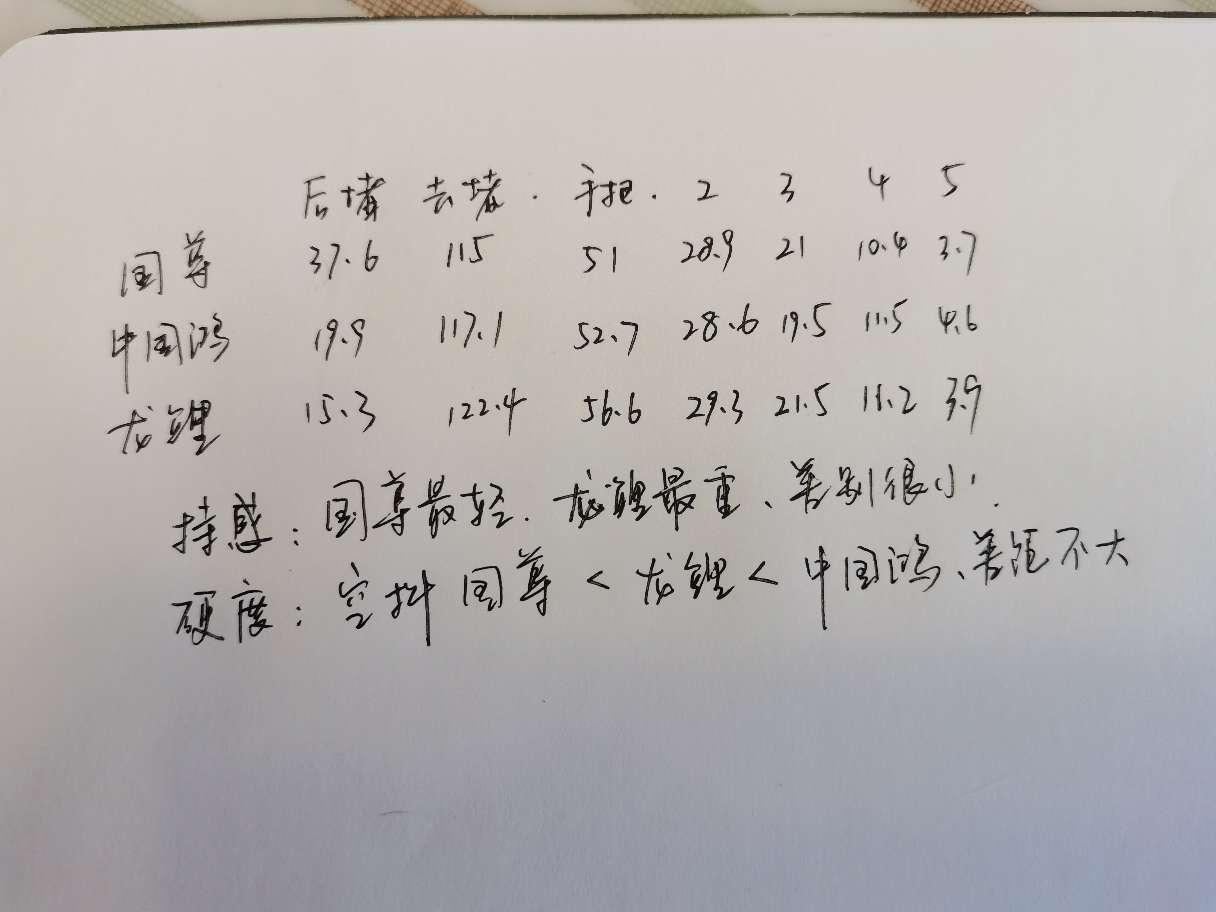 后堵 去堵. 手把. 2 3 4 5
国尊 37.6 115 51 28.9 21 10.4 3.7
中国鸿 19.9 117.1 52.7 28.6 19.5 11.5 4.6
龙鲤 15.3 122.4 56.6 29.3 21.5 11.2 3.9
持感: 国尊最轻. 龙鲤最重、差别很小.
硬度: 空抖 国尊 < 龙鲤 < 中国鸿、差距不大